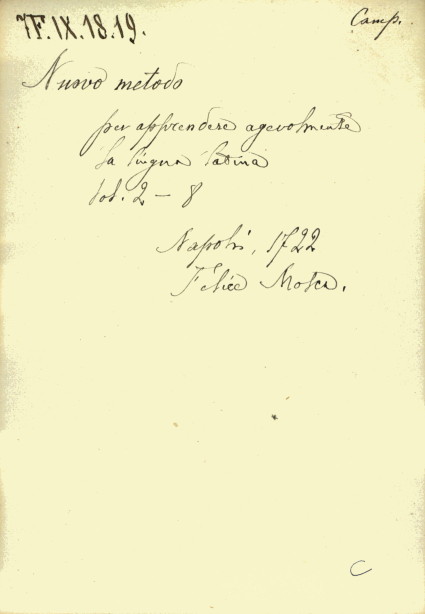 7F.IX.18.19.
Camp.
Nuovo metodo
per apprendere agevolmente
la lingua latina
Vol. 2 - 8
Napoli, 1722
Felice Mosca.
C